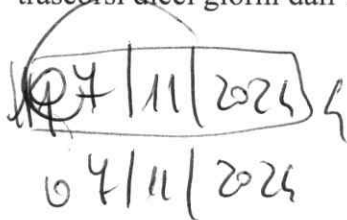 trascorsi dieci giorni dall
07/11/2024
07/11/2024